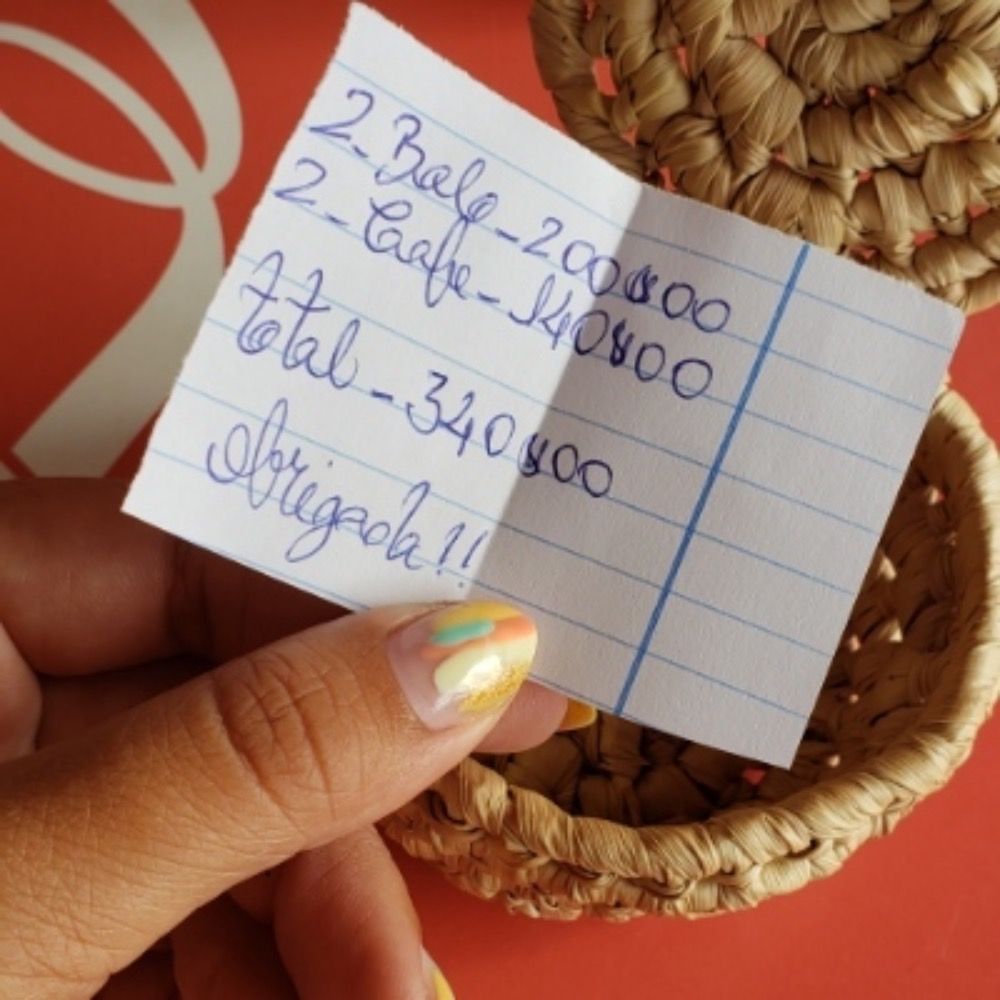 2 - Bolo - 200$00
2 - Cafe - 140$00
total - 340$00
Obrigada!!